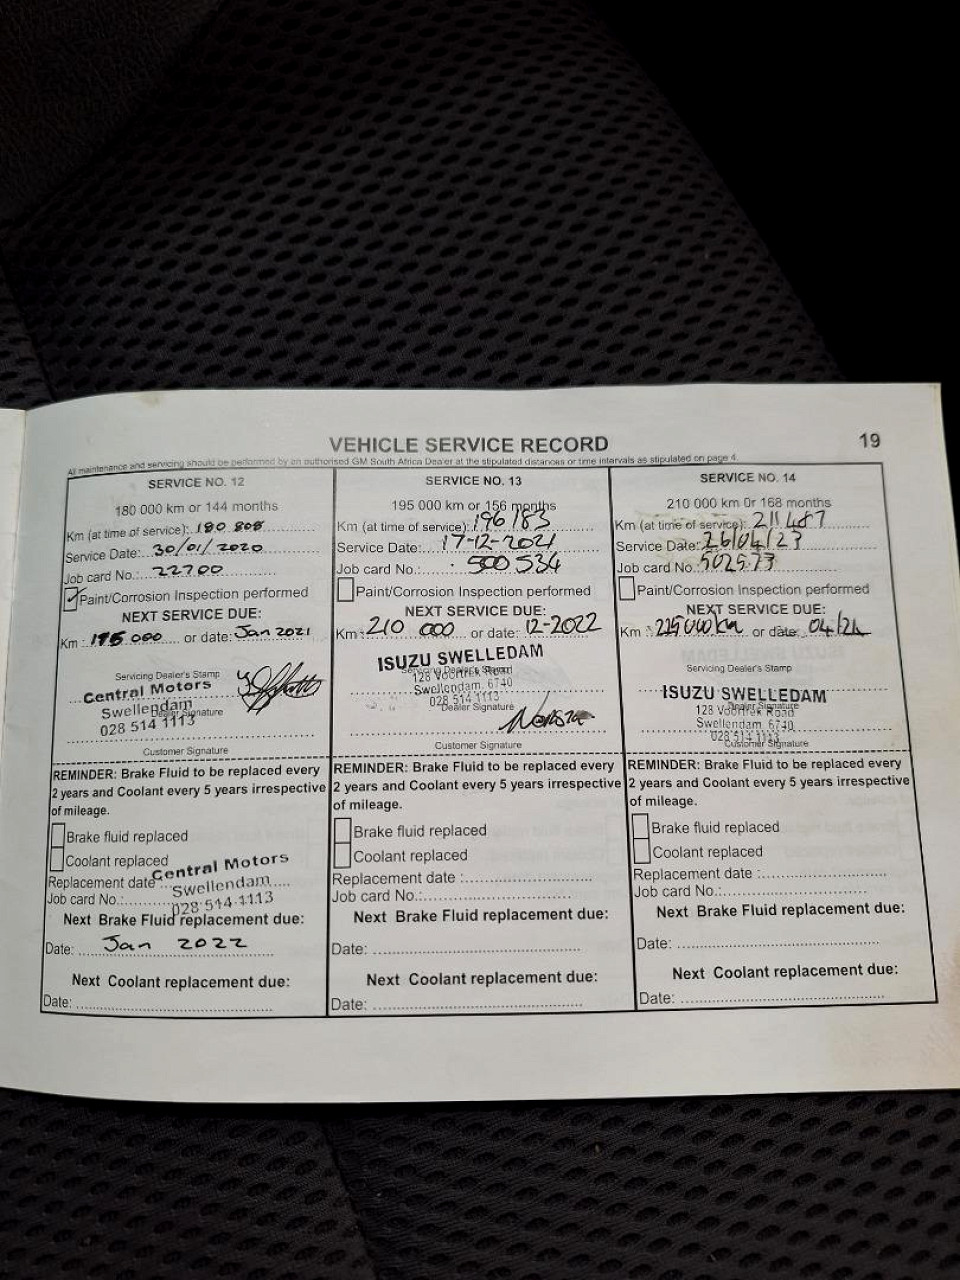 VEHICLE SERVICE RECORD
19
All maintenance and servicing should be performed by an authorised GM South Africa Dealer at the stipulated distances or time intervals as stipulated on page 4.
SERVICE NO. 12
180 000 km or 144 months
Km (at time of service): 180 808
Service Date: 30/01/2020
Job card No.: 22700
Paint/Corrosion Inspection performed
NEXT SERVICE DUE:
Km : 195 000 or date: Jan 2021
Servicing Dealer's Stamp
Central Motors
Swellendam
Dealer Signature
028 514 1113
Customer Signature
REMINDER: Brake Fluid to be replaced every
2 years and Coolant every 5 years irrespective
of mileage.
Brake fluid replaced
Coolant replaced
Central Motors
Replacement date
Swellendam
Job card No.:
028 514 1113
Next Brake Fluid replacement due:
Date: Jan 2022
Next Coolant replacement due:
Date:
SERVICE NO. 13
195 000 km or 156 months
Km (at time of service): 196183
Service Date: 17-12-2021
Job card No.: 500 534
Paint/Corrosion Inspection performed
NEXT SERVICE DUE:
Km : 210 000 or date: 12-2022
ISUZU SWELLEDAM
Servicing Dealer's Stamp
128 Voortrek Road
Swellendam, 6740
028 514 1113
Dealer Signature
Customer Signature
REMINDER: Brake Fluid to be replaced every
2 years and Coolant every 5 years irrespective
of mileage.
Brake fluid replaced
Coolant replaced
Replacement date :
Job card No.:
Next Brake Fluid replacement due:
Date:
Next Coolant replacement due:
Date:
SERVICE NO. 14
210 000 km or 168 months
Km (at time of service): 211 487
Service Date: 26/04/23
Job card No.: 502573
Paint/Corrosion Inspection performed
NEXT SERVICE DUE:
Km : 225 000 km or date: 04/24
Servicing Dealer's Stamp
ISUZU SWELLEDAM
128 Voortrek Road
Dealer Signature
Swellendam, 6740
028 514 1113
Customer Signature
REMINDER: Brake Fluid to be replaced every
2 years and Coolant every 5 years irrespective
of mileage.
Brake fluid replaced
Coolant replaced
Replacement date :
Job card No.:
Next Brake Fluid replacement due:
Date:
Next Coolant replacement due:
Date: